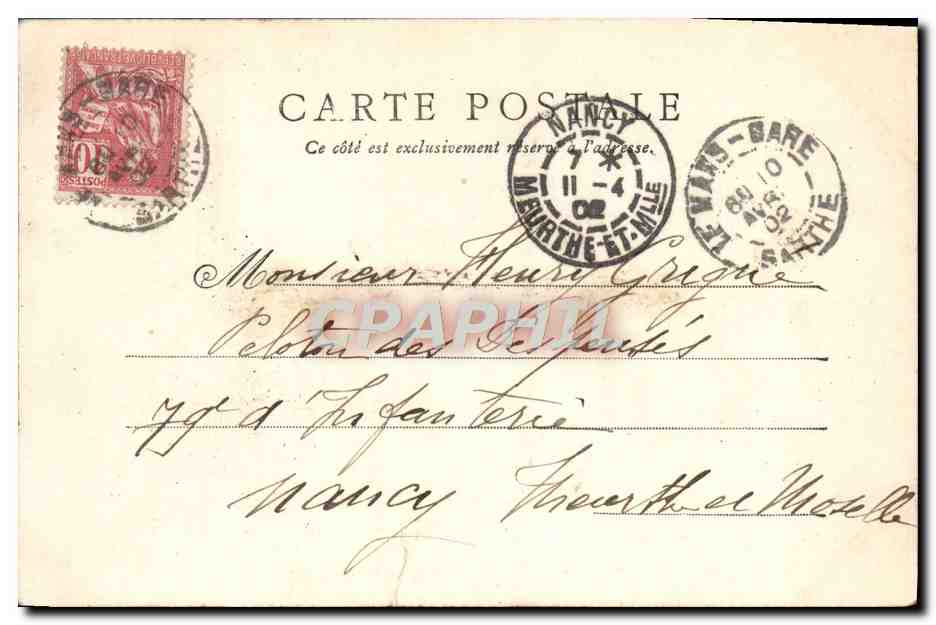 CARTE POSTALE
Ce côté est exclusivement réservé à l'adresse.
NANCY
7 *
11 - 4
02
MEURTHE-ET-MLLE
LE MANS - GARE
10
AVR.
02
SARTHE
GARE
SARTHE
10
POSTES
Monsieur Henry Grigne
Peloton des Dispensés
79e d'Infanterie
Nancy Meurthe et Moselle
CPAPHIL